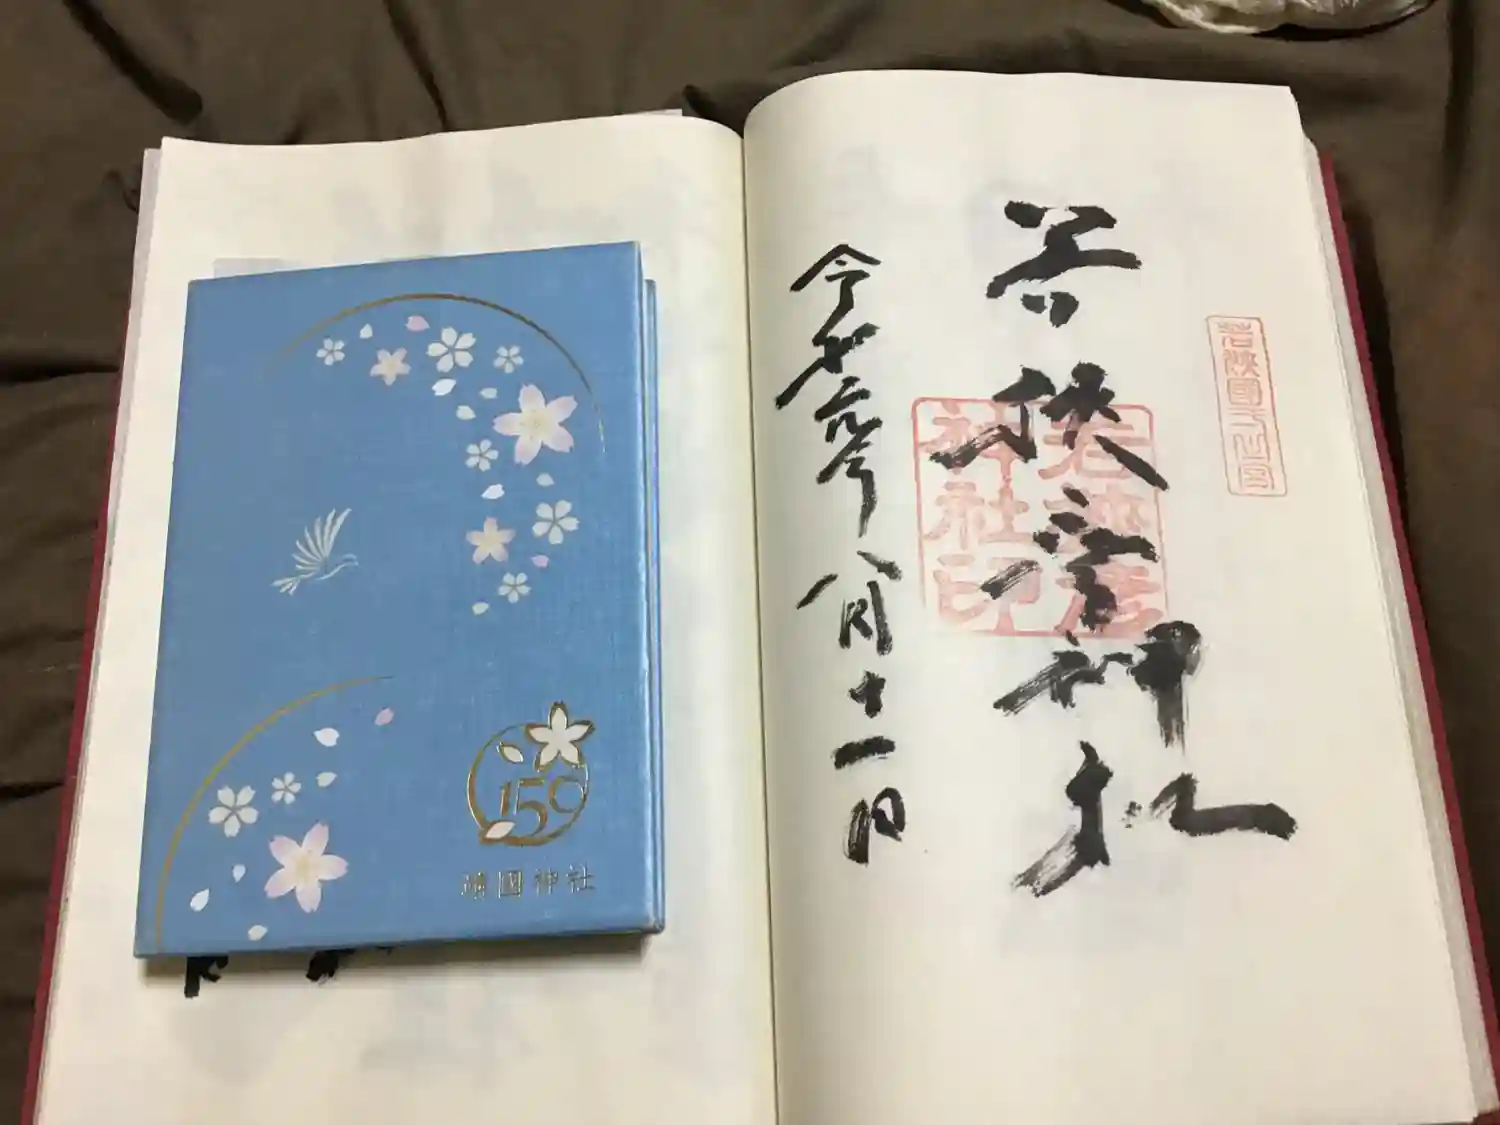 若狭國一之宮
若狭彦神社
若狭彦
神社印
令和元年八月十一日
150
靖國神社